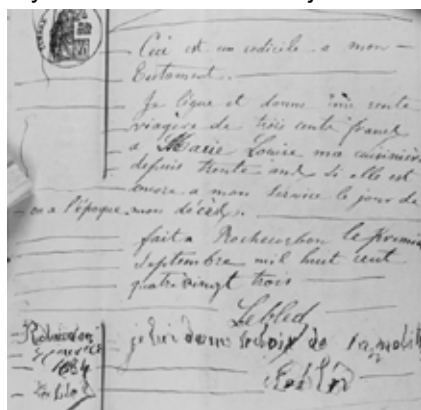 Ceci est un codicile a mon
Testament.
Je lègue et donne une rente
viagère de trois cents francs
a Marie Louise ma cuisinière
depuis trente ans si elle est
encore a mon service le jour de
ou a l'époque mon décès.
fait a Rochecorbon le premier
septembre mil huit cent
quatrevingt trois
Lebled
je lui donne
1884